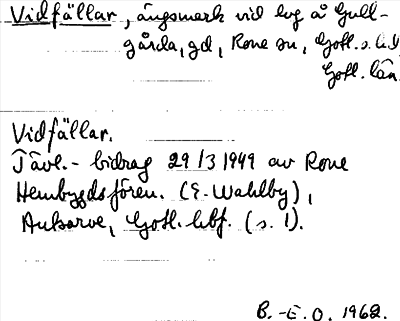 Vidfällar, ängsmark vid lug å Gull-
gårda, gd, Rone sn, Gotl. s. hd
Gotl. län
Vidfällar.
Tävl.- bidrag 29/3 1949 av Rone
Hembygdsfören. (E. Wahlby),
Auksarve, Gotl. hbf. (s. 1).
B.-E. O. 1962.